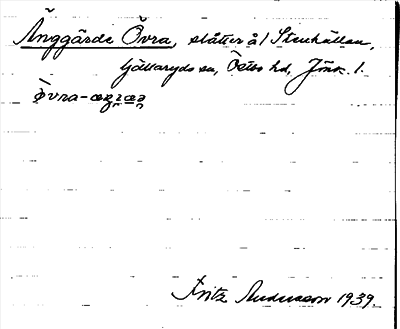 Änggärde Övra, slåtter å/ Stenhällan,
Gällaryds sn, Östbo hd, Jönk. l.
Övra-
Fritz Andersson 1939.